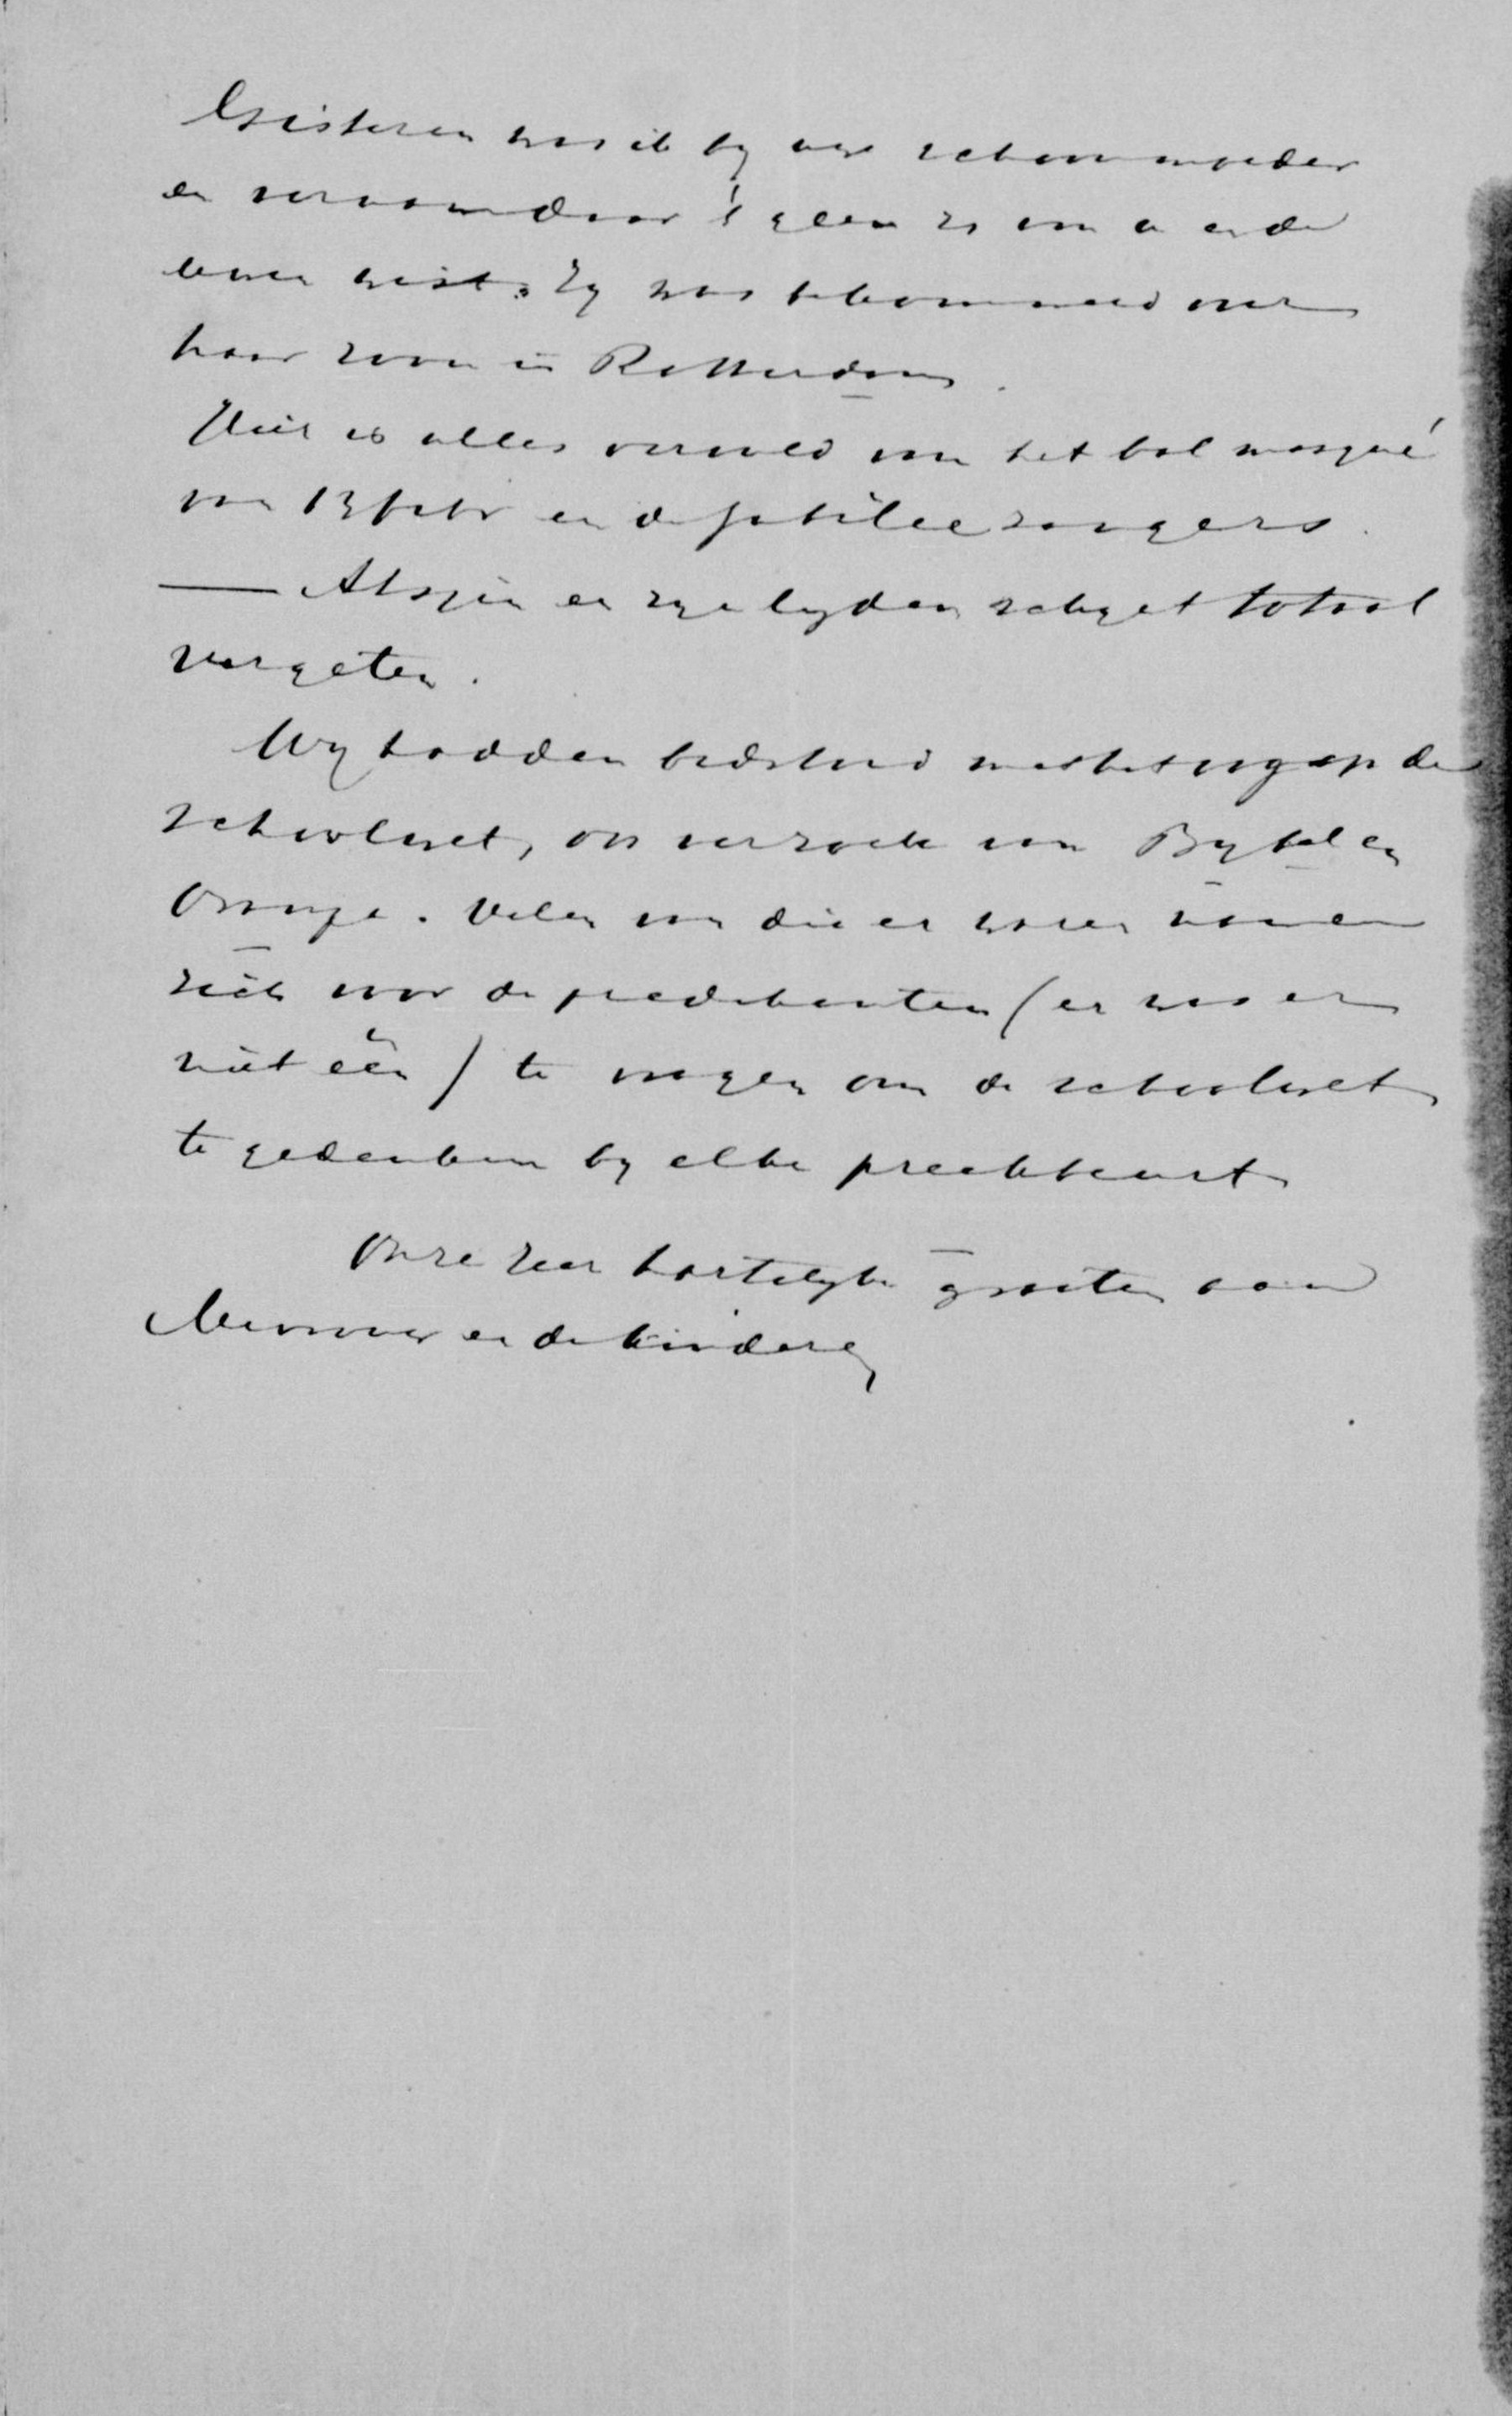 Gisteren was ik by uwe schoonmoeder
en vernam daar 't geen zy van u en de
uwen wist. Zy was bekommerd over
haar zoon in Rotterdam.
Hier is alles vervuld van het bal masqué
van 13 febr en de jubilee zangers.
— Atsjin en zyn lyden schynt totaal
vergeten.
Wy hadden bidstond met het oog op de
schoolwet, op verzoek van Bybel en
Oranje. Velen van die er waren namen
zich voor de predikanten (er was er
niet één) te vragen om de schoolwet
te gedenken by elke preekbeurt
Onze zeer hartelyke groeten aan
Mevrouw en de kinderen